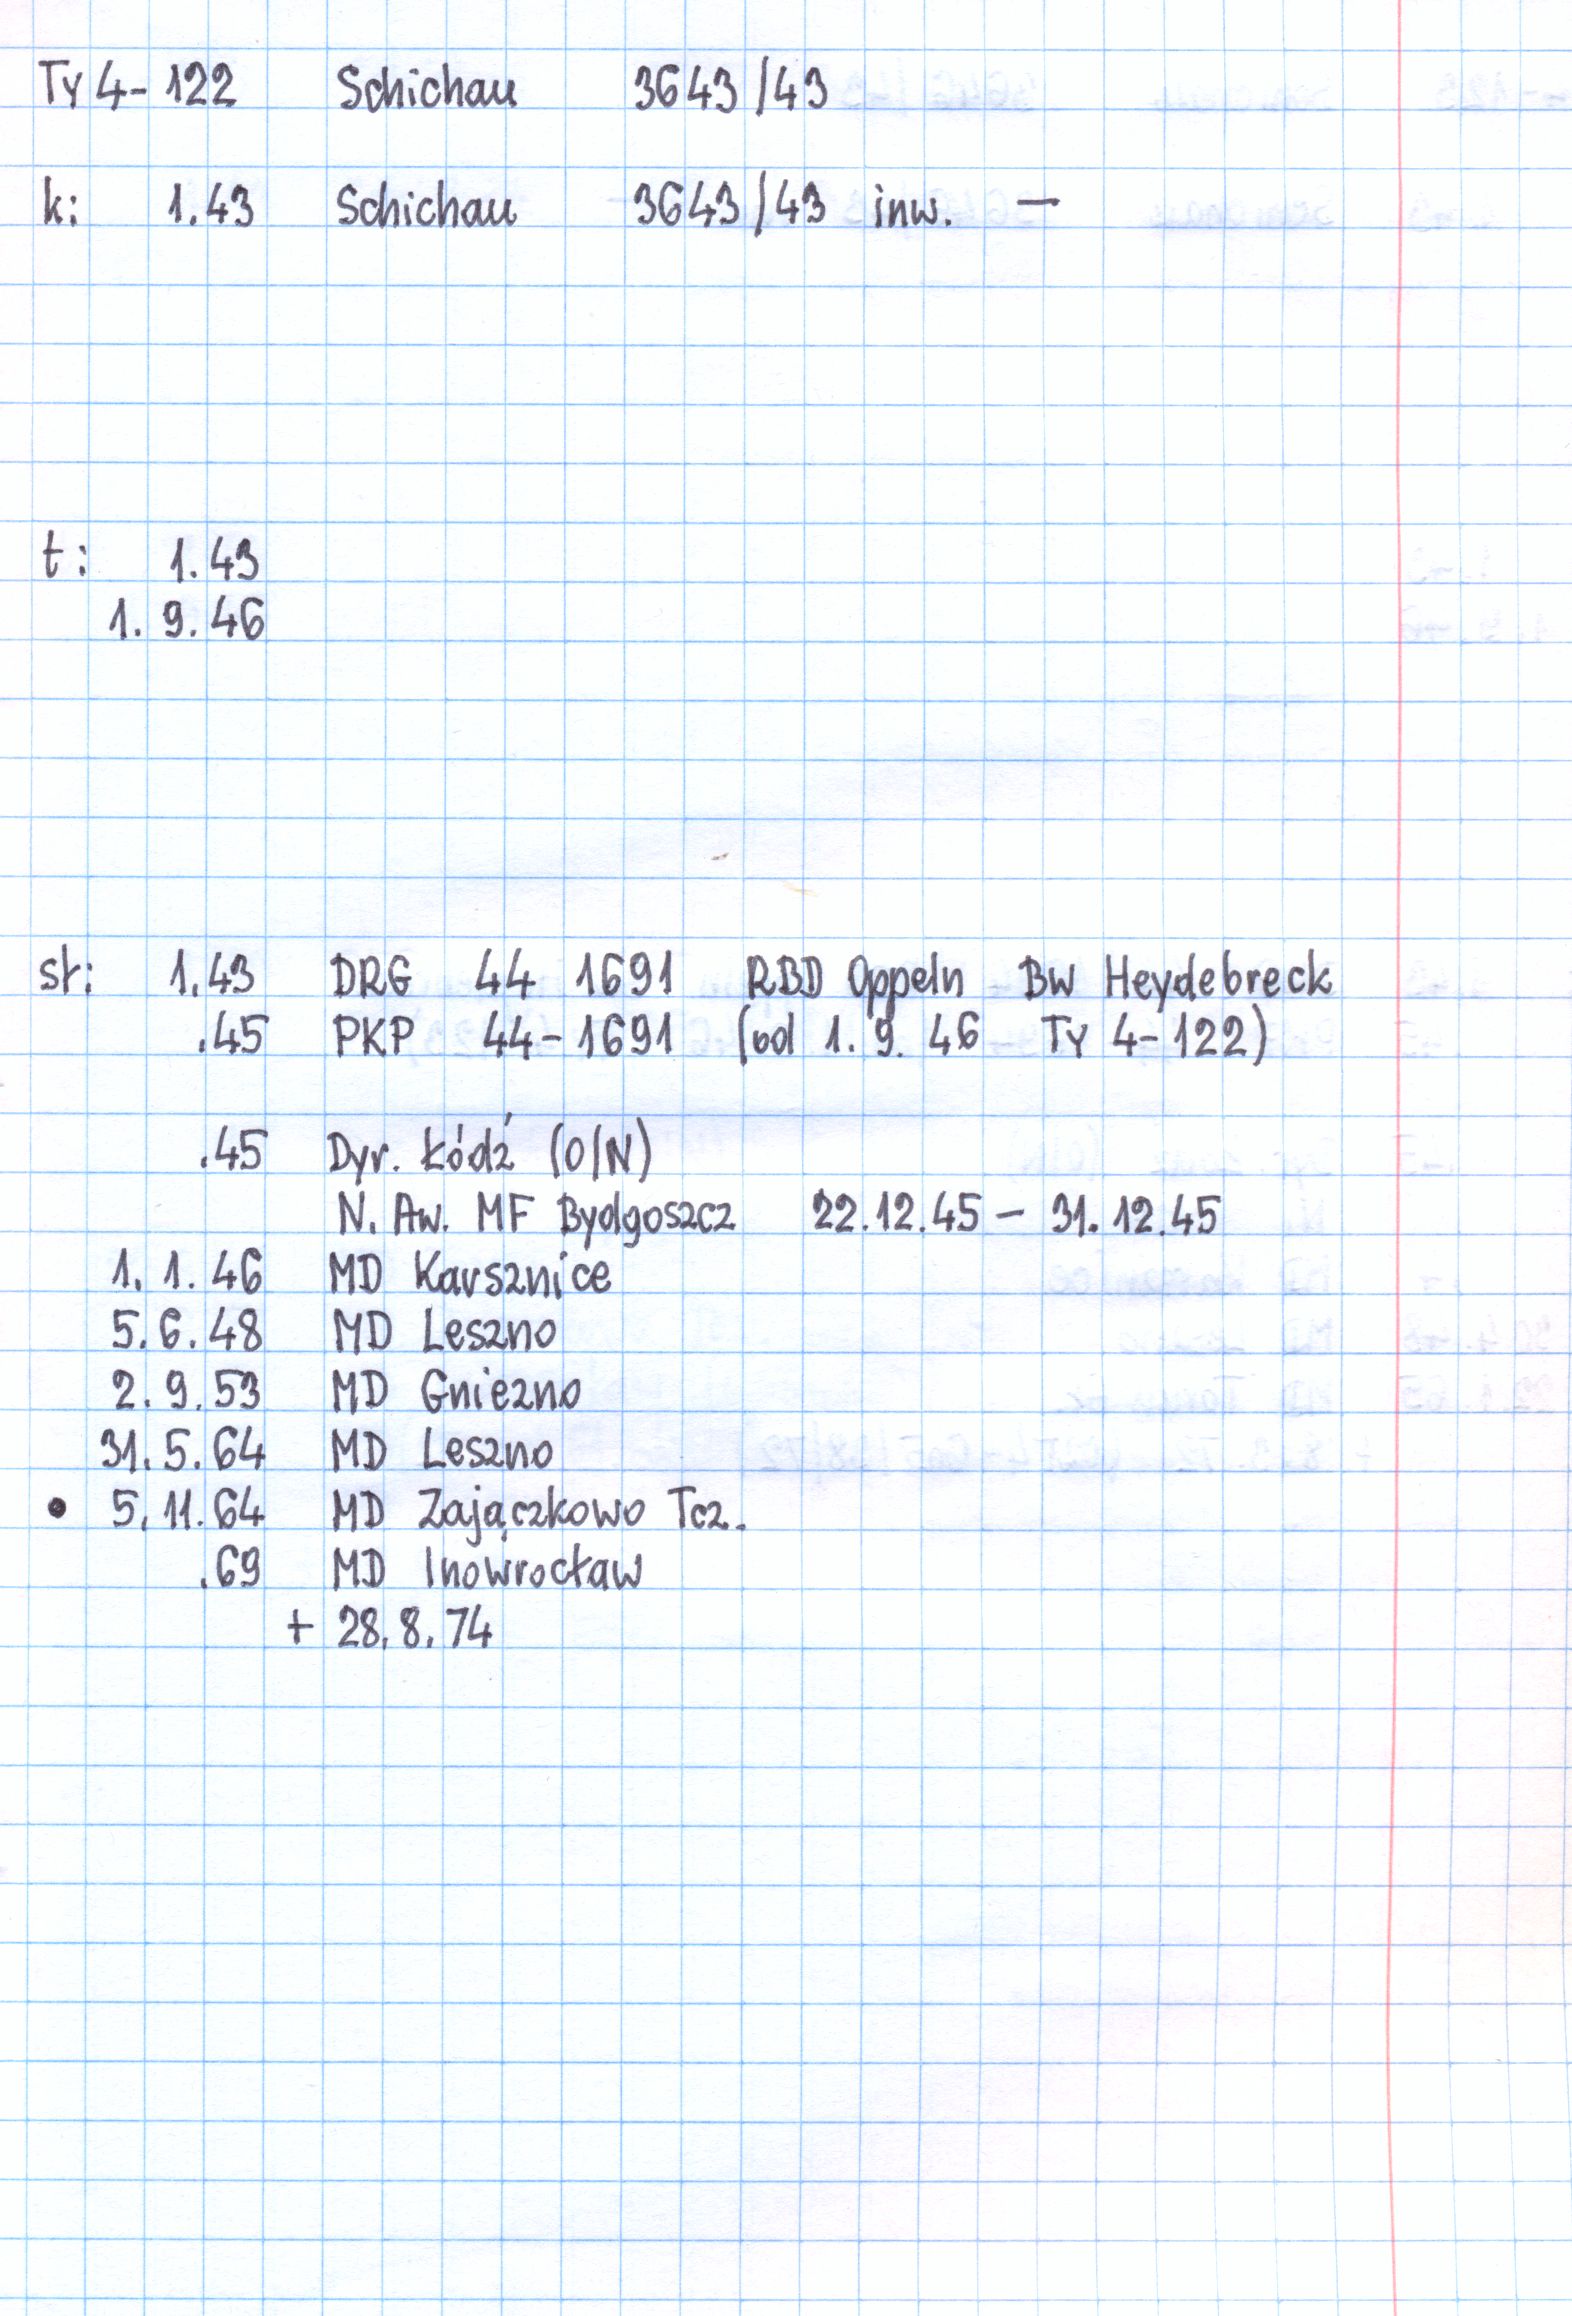 Ty 4-122 Schichau 3643/43
k: 1.43 Schichau 3643/43 inw. —
t: 1.43
1. 9. 46
st: 1.43 DRG 44 1691 RBD Oppeln Bw Heydebreck
.45 PKP 44-1691 (od 1. 9. 46 Ty 4-122)
.45 Dyr. Łódź (O/N)
N. Aw. MF Bydgoszcz 22.12.45 - 31.12.45
1. 1. 46 MD Karsznice
5. 6. 48 MD Leszno
2. 9. 53 MD Gniezno
31. 5. 64 MD Leszno
• 5. 11. 64 MD Zajączkowo Tcz.
.69 MD Inowrocław
+ 28. 8. 74